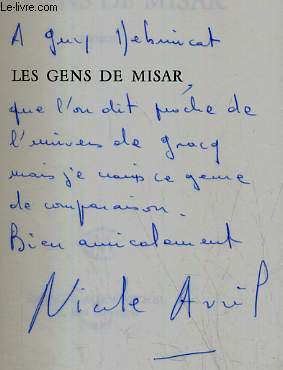 © Le-livre.com
A Guy
LES GENS DE MISAR
que l'on dit proche de
l'univers de Gracq
mais je
ce genre
de comparaison.
Bien amicalement
Nicole Avril